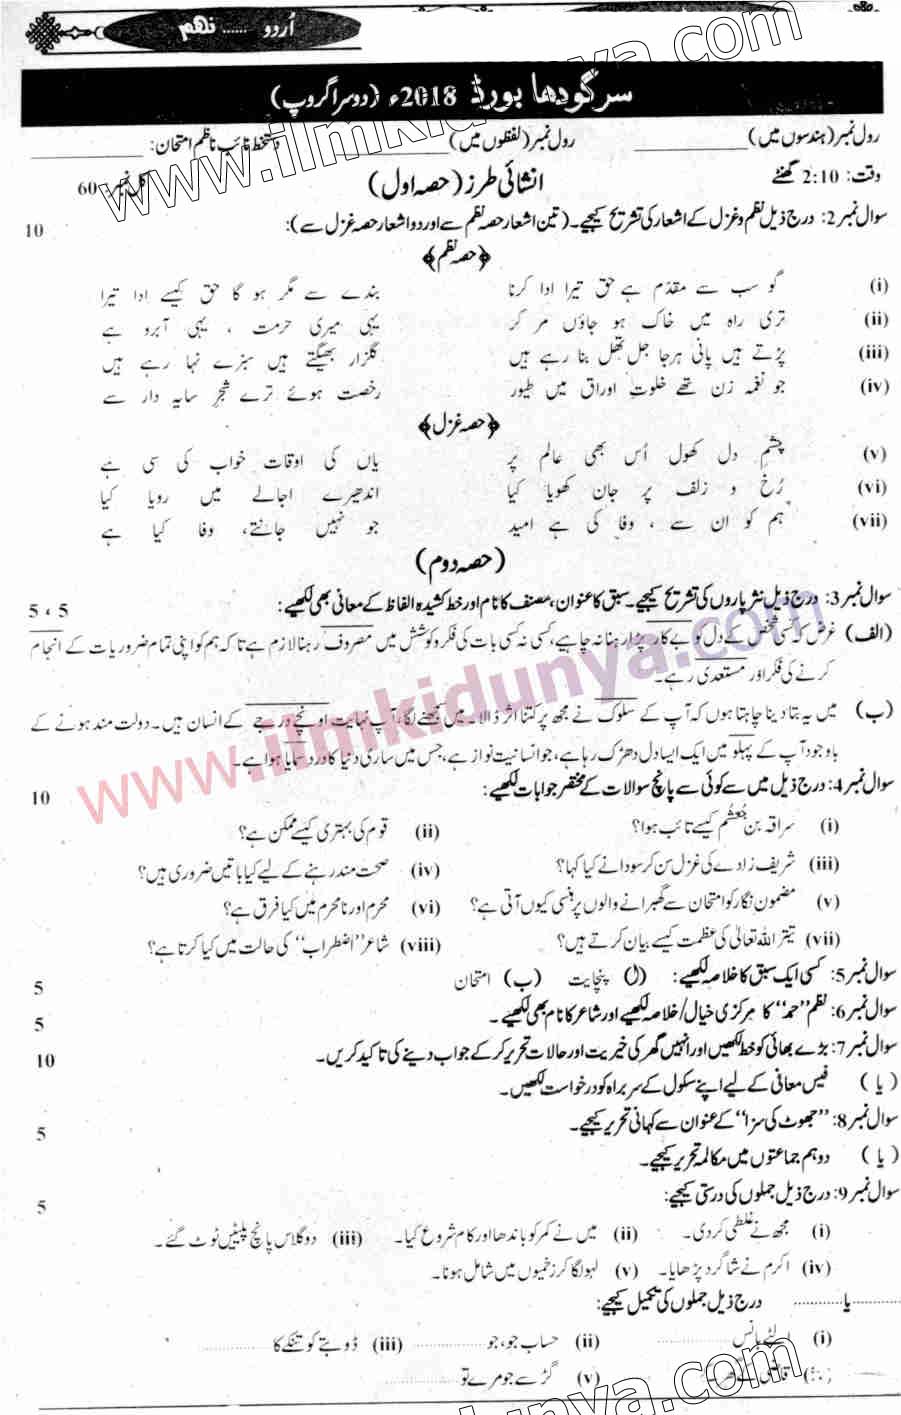 اُردو ...... نہم
سرگودھا بورڈ 2018ء (دوسرا گروپ)
رول نمبر (ہندسوں میں) ____________ رول نمبر (لفظوں میں) ____________ دستخط نائب ناظم امتحان: ____________
وقت: 2:10 گھنٹے انشائی طرز (حصہ اول) کل نمبر: 60
سوال نمبر 2: درج ذیل نظم و غزل کے اشعار کی تشریح کیجیے۔ (تین اشعار حصہ نظم سے اور دو اشعار حصہ غزل سے): 10
﴿حصہ نظم﴾
(i) گو سب سے مقدّم ہے حق تیرا ادا کرنا بندے سے مگر ہو گا حق کیسے ادا تیرا
(ii) تری راہ میں خاک ہو جاؤں مر کر یہی میری حرمت ، یہی آبرو ہے
(iii) پڑتے ہیں پانی ہر جا جل تھل بنا رہے ہیں گلزار بھیگتے ہیں سبزے نہا رہے ہیں
(iv) جو نغمہ زن تھے خلوتِ اوراق میں طیور رخصت ہوئے ترے شجرِ سایہ دار سے
﴿حصہ غزل﴾
(v) چشمِ دل کھول اُس بھی عالم پر یاں کی اوقات خواب کی سی ہے
(vi) رُخ و زلف پر جان کھویا کیا اندھیرے اجالے میں رویا کیا
(vii) ہم کو ان سے ، وفا کی ہے امید جو نہیں جانتے، وفا کیا ہے
(حصہ دوم)
سوال نمبر 3: درج ذیل نثر پاروں کی تشریح کیجیے۔ سبق کا عنوان، مصنف کا نام اور خط کشیدہ الفاظ کے معانی بھی لکھیے: 5 ، 5
(الف) غرض کہ کسی شخص کے دل کو بے کار پڑا رہنا نہ چاہیے، کسی نہ کسی بات کی فکر و کوشش میں مصروف رہنا لازم ہے تا کہ ہم کو اپنی تمام ضروریات کے انجام
کرنے کی فکر اور مستعدی رہے۔
(ب) میں یہ بتا دینا چاہتا ہوں کہ آپ کے سلوک نے مجھ پر کتنا اثر ڈالا۔ میں سمجھنے لگا، آپ نہایت اونچے درجے کے انسان ہیں۔ دولت مند ہونے کے
باوجود آپ کے پہلو میں ایک ایسا دل دھڑک رہا ہے، جو انسانیت نواز ہے، جس میں ساری دنیا کا درد سمایا ہوا ہے۔
سوال نمبر 4: درج ذیل میں سے کوئی سے پانچ سوالات کے مختصر جوابات لکھیے: 10
(i) سراقہ بن جُعشُم کیسے تائب ہوا؟ (ii) قوم کی بہتری کیسے ممکن ہے؟
(iii) شریف زادے کی غزل سن کر سودا نے کیا کہا؟ (iv) صحت مند رہنے کے لیے کیا باتیں ضروری ہیں؟
(v) مضمون نگار کو امتحان سے گھبرانے والوں پر ہنسی کیوں آتی ہے؟ (vi) محرم اور نامحرم میں کیا فرق ہے؟
(vii) تیتر اللہ تعالیٰ کی عظمت کیسے بیان کرتے ہیں؟ (viii) شاعر "اضطراب" کی حالت میں کیا کرتا ہے؟
سوال نمبر 5: کسی ایک سبق کا خلاصہ لکھیے: (ا) پنچایت (ب) امتحان 5
سوال نمبر 6: نظم "حمد" کا مرکزی خیال/خلاصہ لکھیے اور شاعر کا نام بھی لکھیے۔ 5
سوال نمبر 7: بڑے بھائی کو خط لکھیں اور انہیں گھر کی خیریت اور حالات تحریر کر کے جواب دینے کی تاکید کریں۔ 10
(یا) فیس معافی کے لیے اپنے سکول کے سربراہ کو درخواست لکھیں۔
سوال نمبر 8: "جھوٹ کی سزا" کے عنوان سے کہانی تحریر کیجیے۔ 5
(یا) دو ہم جماعتوں میں مکالمہ تحریر کیجیے۔
سوال نمبر 9: درج ذیل جملوں کی درستی کیجیے: 5
(i) مجھ نے غلطی کر دی۔ (ii) میں نے کمر کو باندھا اور کام شروع کیا۔ (iii) دو گلاس پانچ پلیٹیں ٹوٹ گئے۔
(iv) اکرم نے شاگرد پڑھایا۔ (v) لہو لگا کر زخمیوں میں شامل ہونا۔
............ یا ............ درج ذیل جملوں کی تکمیل کیجیے:
(i) الٹے بانس ............ (ii) حساب جو، جو ............ (iii) ڈوبتے کو تنکے کا ............
قاضی کے گھر کے ............ (v) گڑ سے جو مرے تو ............
www.ilmkidunya.com
www.ilmkidunya.com
www.ilmkidunya.com